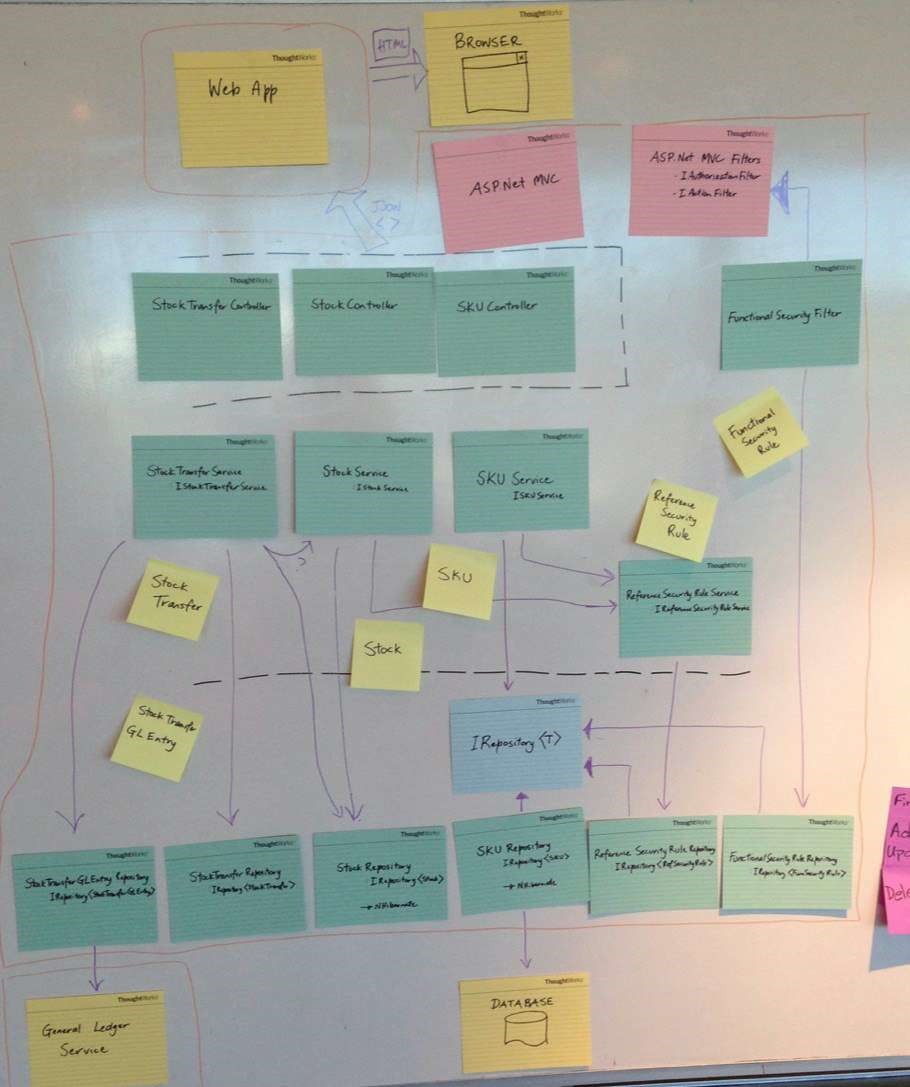 ThoughtWorks
Web App
HTML
ThoughtWorks
BROWSER
x
ThoughtWorks
ASP.Net MVC
ThoughtWorks
ASP.Net MVC Filters
- IAuthorizationFilter
- IAction Filter
JSON
< >
ThoughtWorks
Stock Transfer Controller
ThoughtWorks
Stock Controller
ThoughtWorks
SKU Controller
ThoughtWorks
Functional Security Filter
Functional
Security
Rule
ThoughtWorks
Stock Transfer Service
: IStockTransferService
ThoughtWorks
Stock Service
: IStock Service
ThoughtWorks
SKU Service
ISKUService
Reference
Security
Rule
Stock
Transfer
SKU
Stock
ThoughtWorks
Reference Security Rule Service
: IReferenceSecurityRuleService
Stock Transfer
GL Entry
ThoughtWorks
IRepository <T>
ThoughtWorks
StockTransferGLEntry Repository
IRepository <StockTransferGLEntry>
ThoughtWorks
StockTransfer Repository
IRepository <StockTransfer>
ThoughtWorks
Stock Repository
IRepository <Stock>
→ NHibernate
ThoughtWorks
SKU Repository
IRepository <SKU>
→ NHibernate
ThoughtWorks
Reference Security Rule Repository
IRepository <RefSecurityRule>
ThoughtWorks
Functional Security Rule Repository
IRepository <FunSecurityRule>
ThoughtWorks
General Ledger
Service
ThoughtWorks
DATABASE